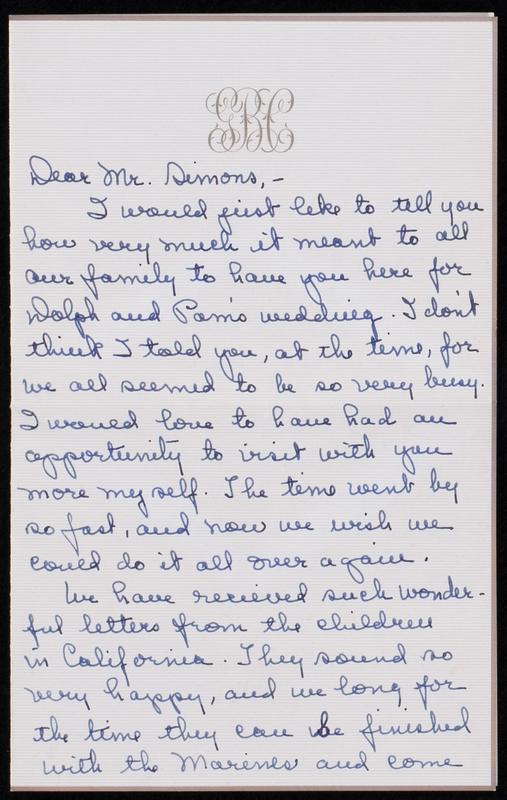 Dear Mr. Simons, -
I would just like to tell you
how very much it meant to all
our family to have you here for
Dolph and Pam's wedding. I don't
think I told you, at the time, for
we all seemed to be so very busy.
I would love to have had an
opportunity to visit with you
more myself. The time went by
so fast, and now we wish we
could do it all over again.
We have recieved such wonder-
ful letters from the children
in California. They sound so
very happy, and we long for
the time they can be finished
with the Marines and come